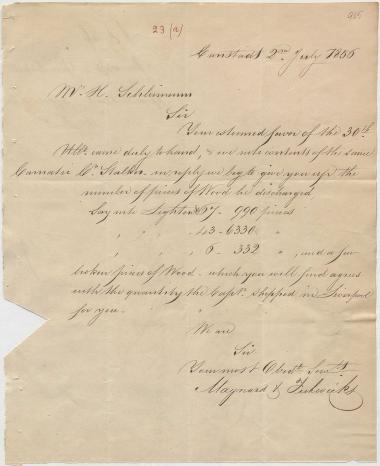 23 (a)
Cronstadt 2nd July 1856
Mr. H. Schliemann
Sir
Your esteemed favor of the 30th
Ulto. came duly to hand, & we note contents of the same
Stalker in reply we beg to give you up the
number of pieces of Wood he discharged
Say into Lighter 67 - 990 pieces
" " " 43 - 6330 "
" " " 6 - 332 " , and a few
broken pieces of Wood - which you will find agrees
with the quantity the Captn. shipped in Liverpool
for you.
We are
Sir
Your most Obedt. Servts.
Maynard &